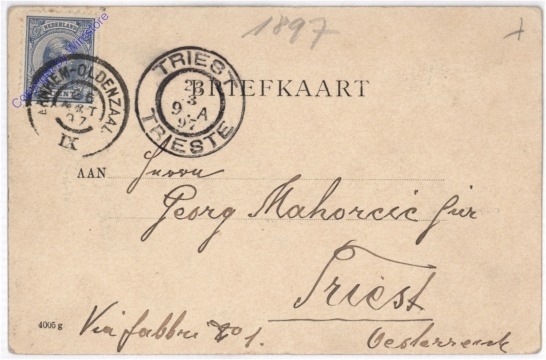 1897
NEDERLAND
ARNHEM-OLDENZAAL
IX
TRIEST
9.A
97
TRIESTE
BRIEFKAART
AAN Herrn
Georg Mahorcic jur
Triest
Via fabbri
Oesterreich
4005 g